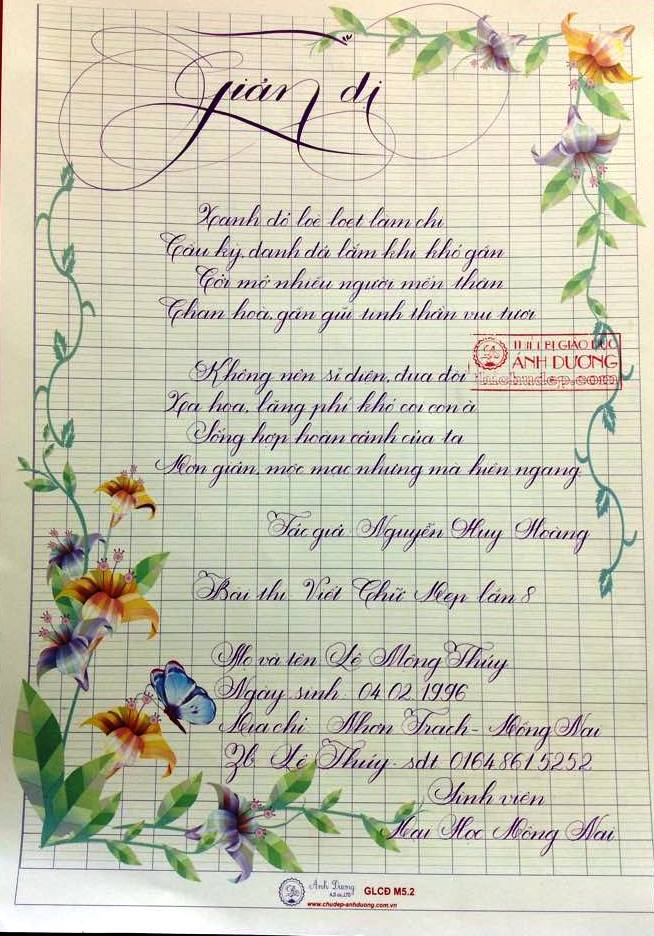 Giản dị
Xanh đỏ loè loẹt làm chi
Cầu kỳ, đanh đá lắm khi khó gần
Cởi mở nhiều người mến thân
Chan hoà, gần gũi tinh thần vui tươi
THIẾT BỊ GIÁO DỤC
ÁNH DƯƠNG
Không nên sĩ diện, đua đòi
luchudep.com
Xa hoa, lãng phí khó coi con à
Sống hợp hoàn cảnh của ta
Đơn giản, mộc mạc nhưng mà hiên ngang
Tác giả Nguyễn Huy Hoàng
Bài thi Viết Chữ Đẹp lần 8
Họ và tên Lê Mộng Thúy
Ngày sinh 04.02.1996
Địa chỉ Nhơn Trạch - Đồng Nai
Fb Lê Thúy - sdt 01648615252
Sinh viên
Đại Học Đồng Nai
Ánh Dương
A.D co.,LTD
GLCĐ M5.2
www.chudep-anhduong.com.vn